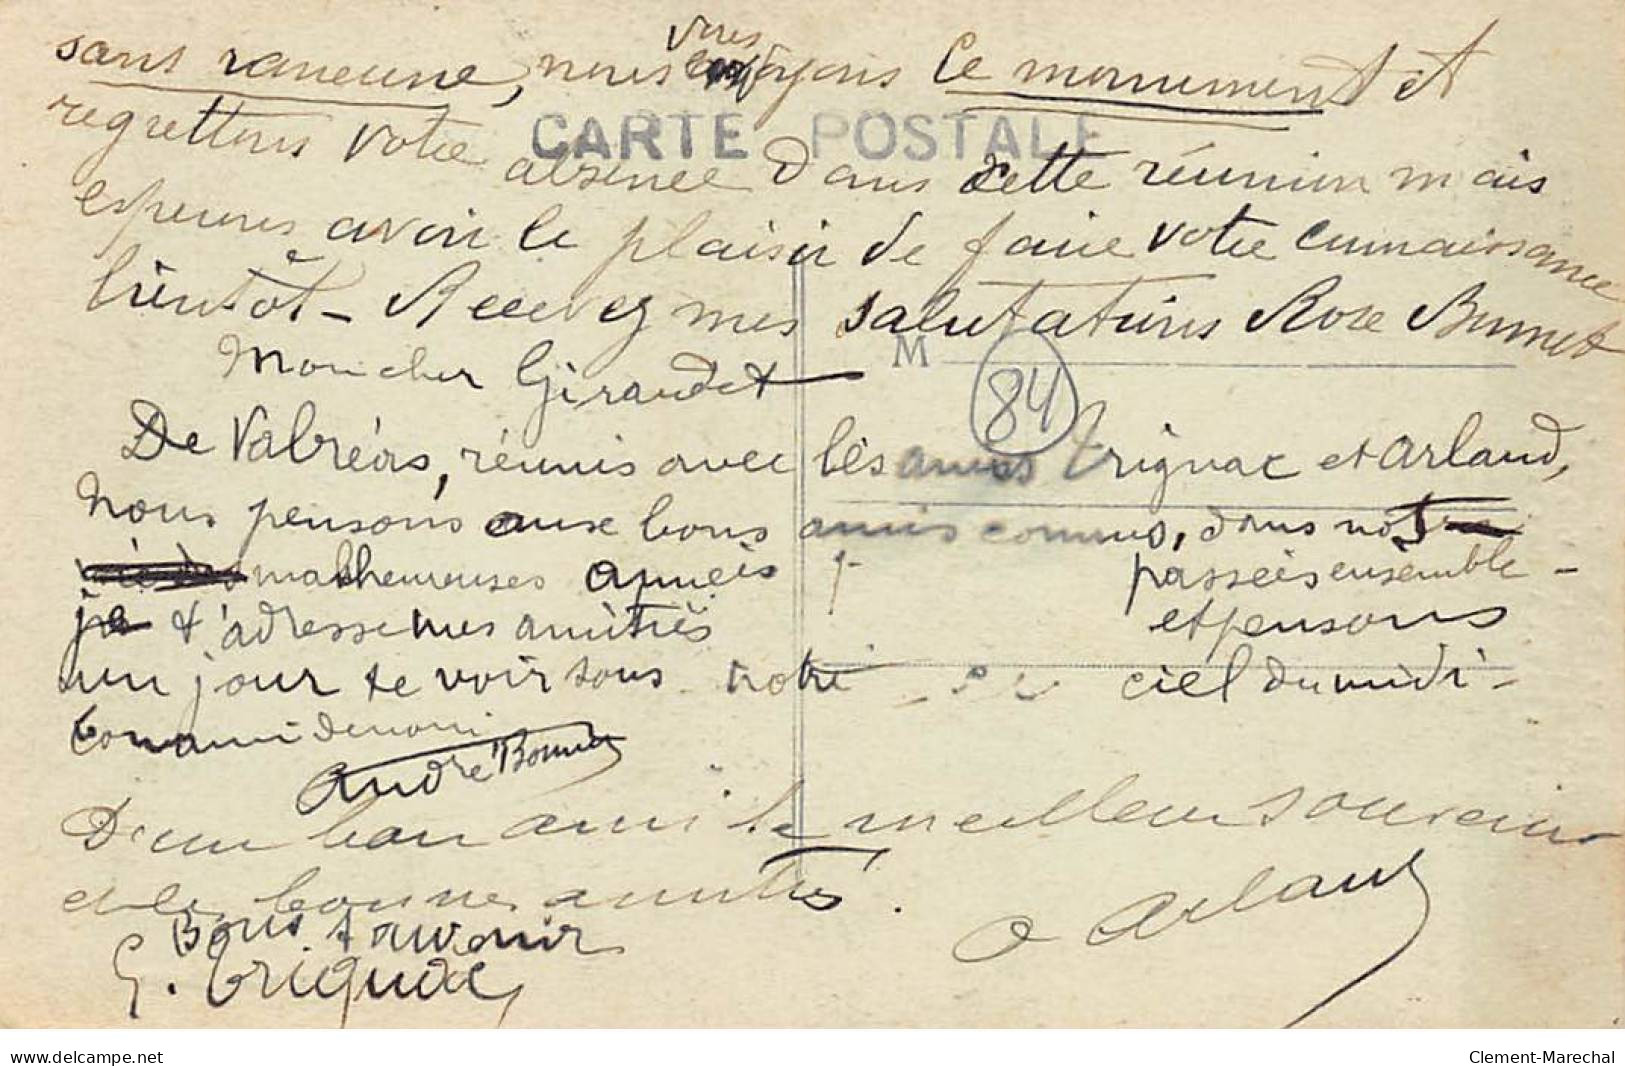 sans rancune, nous vous voyons Ce monument et
CARTE POSTALE
regrettons votre absence dans cette réunion mais
esperons avoir le plaisir de faire votre connaissance
bientôt - Recevez mes salutations Rose
M
84
Mon cher Giraudet
De Valréas, réunis avec les amis Trignac et Arland,
nous pensons aux bons amis connus, dans nos
malheureuses années passées ensemble -
je t'adresse mes amitiés et pensons
un jour te voir sous notre ciel du midi -
bon ami
André
D'un bon ami le meilleur souvenir
et les bonnes amitiés.
Arland
Bons souvenir
G. Trignac
www.delcampe.net
Clement-Marechal